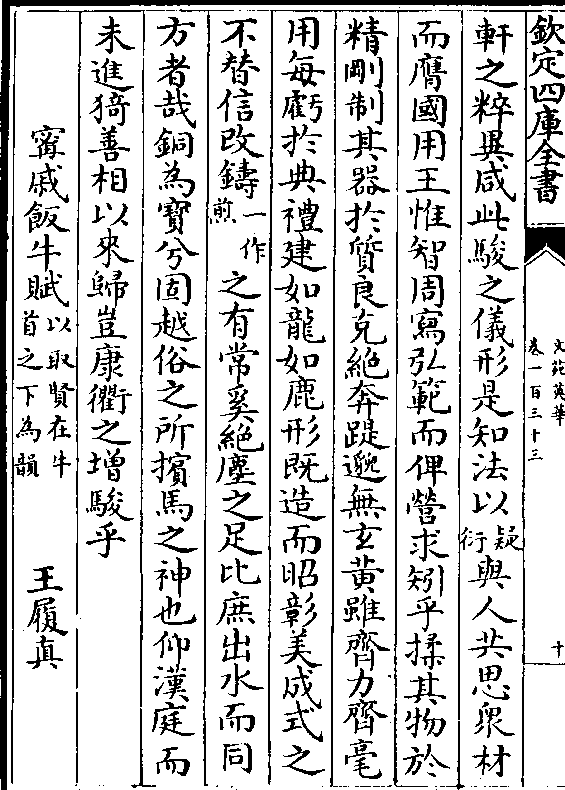 欽定四庫全書
文苑英華
卷一百三十三
十
軒之粹異咸此駿之儀形是知法以疑衍與人共思衆材
而膺國用王惟智周寫弘範而俾營求矧乎揉其物於
精剛制其器於質良克絶奔踶邈無玄黄雖齊力齊毫
用每虧於典禮建如龍如鹿形既造而昭彰美成式之
不替信改鑄一作煎之有常奚絶塵之足比庶出水而同
方者哉銅為寳兮固越俗之所擯馬之神也仰漢庭而
未進猗善相以來歸豈康衢之增駿乎
甯戚飯牛賦以取賢在牛首之下為韻
王履真